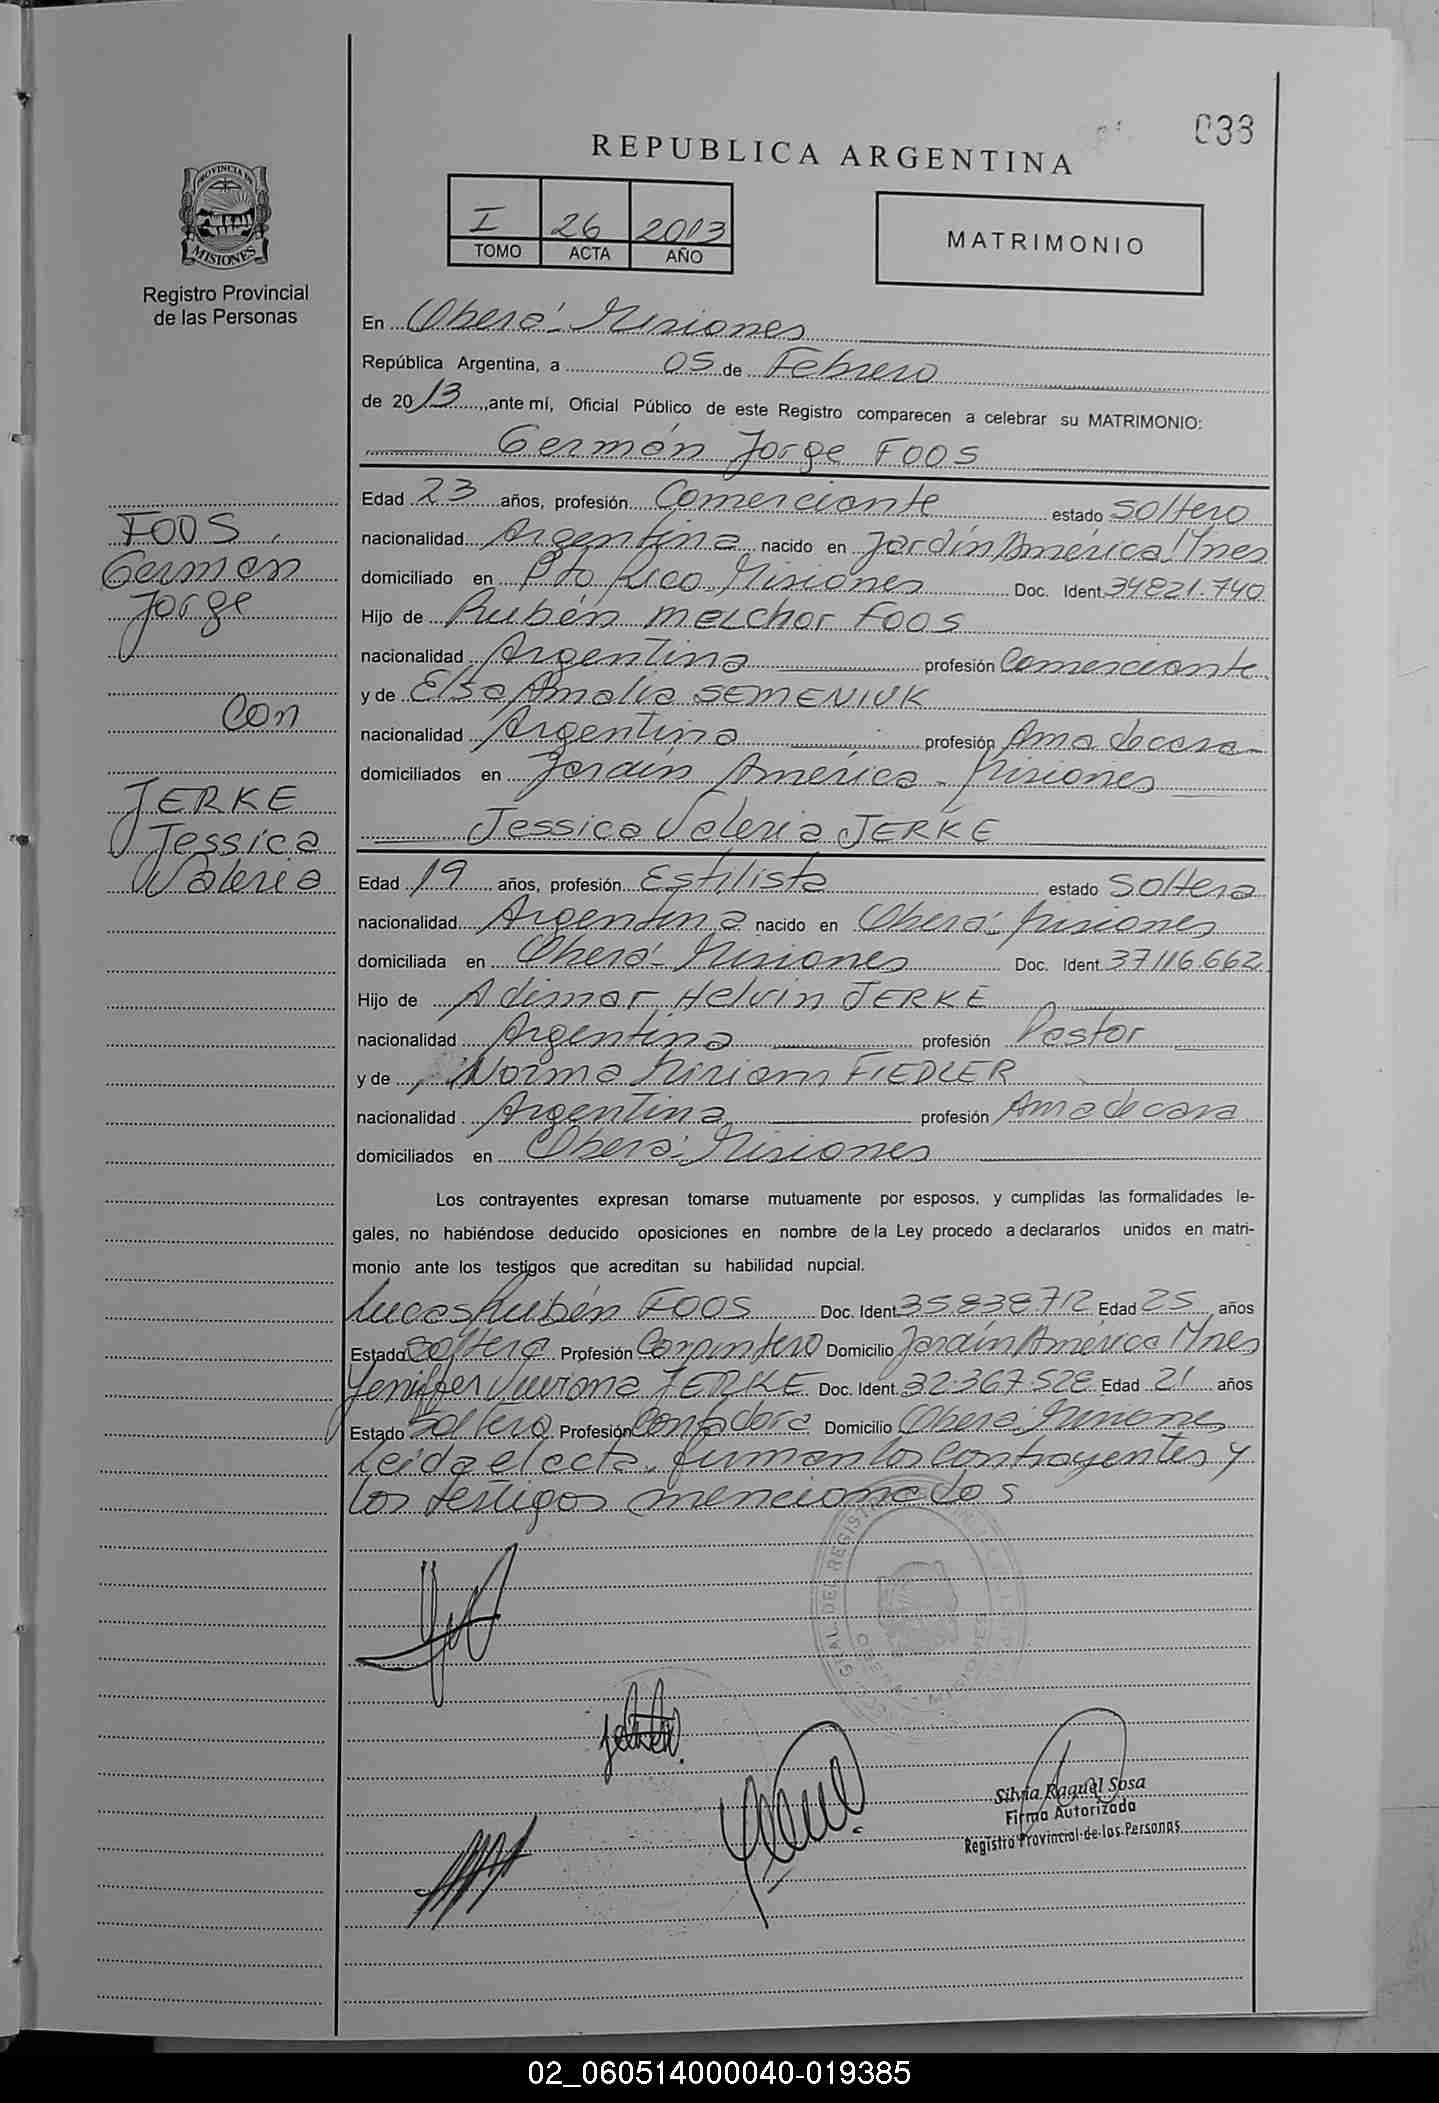 033
REPUBLICA ARGENTINA
PROVINCIA DE
MISIONES
Registro Provincial
de las Personas
I 26 2013
TOMO ACTA AÑO
MATRIMONIO
En Oberá - Misiones
República Argentina, a 05 de Febrero
de 2013, ante mí, Oficial Público de este Registro comparecen a celebrar su MATRIMONIO:
Germán Jorge FOOS
FOOS
German
Jorge
Con
JERKE
Jessica
Valeria
Edad 23 años, profesión Comerciante estado Soltero
nacionalidad Argentina nacido en Jardín América Mnes
domiciliado en Pto Rico Misiones Doc. Ident. 34821.740
Hijo de Rubén Melchor FOOS
nacionalidad Argentina profesión Comerciante
y de Elsa Amalia SEMENIUK
nacionalidad Argentina profesión Ama de casa
domiciliados en Jardín América - Misiones
Jessica Valeria JERKE
Edad 19 años, profesión Estilista estado Soltera
nacionalidad Argentina nacido en Oberá - Misiones
domiciliada en Oberá - Misiones Doc. Ident. 37.116.662
Hijo de Adimar Helvin JERKE
nacionalidad Argentina profesión Pastor
y de Norma Miriam FIEDLER
nacionalidad Argentina profesión Ama de casa
domiciliados en Oberá - Misiones
Los contrayentes expresan tomarse mutuamente por esposos, y cumplidas las formalidades le-
gales, no habiéndose deducido oposiciones en nombre de la Ley procedo a declararlos unidos en matri-
monio ante los testigos que acreditan su habilidad nupcial.
Lucas Rubén FOOS Doc. Ident. 35.838.712 Edad 25 años
Estado Soltero Profesión Carpintero Domicilio Jardín América Mnes
Yeniffer Viviana JERKE Doc. Ident. 32.367.528 Edad 21 años
Estado Soltera Profesión Contadora Domicilio Oberá Misiones
Leída el acta, firman los contrayentes y
los testigos mencionados
Silvia Raquel Sosa
Firma Autorizada
Registro Provincial de las Personas
02_060514000040-019385